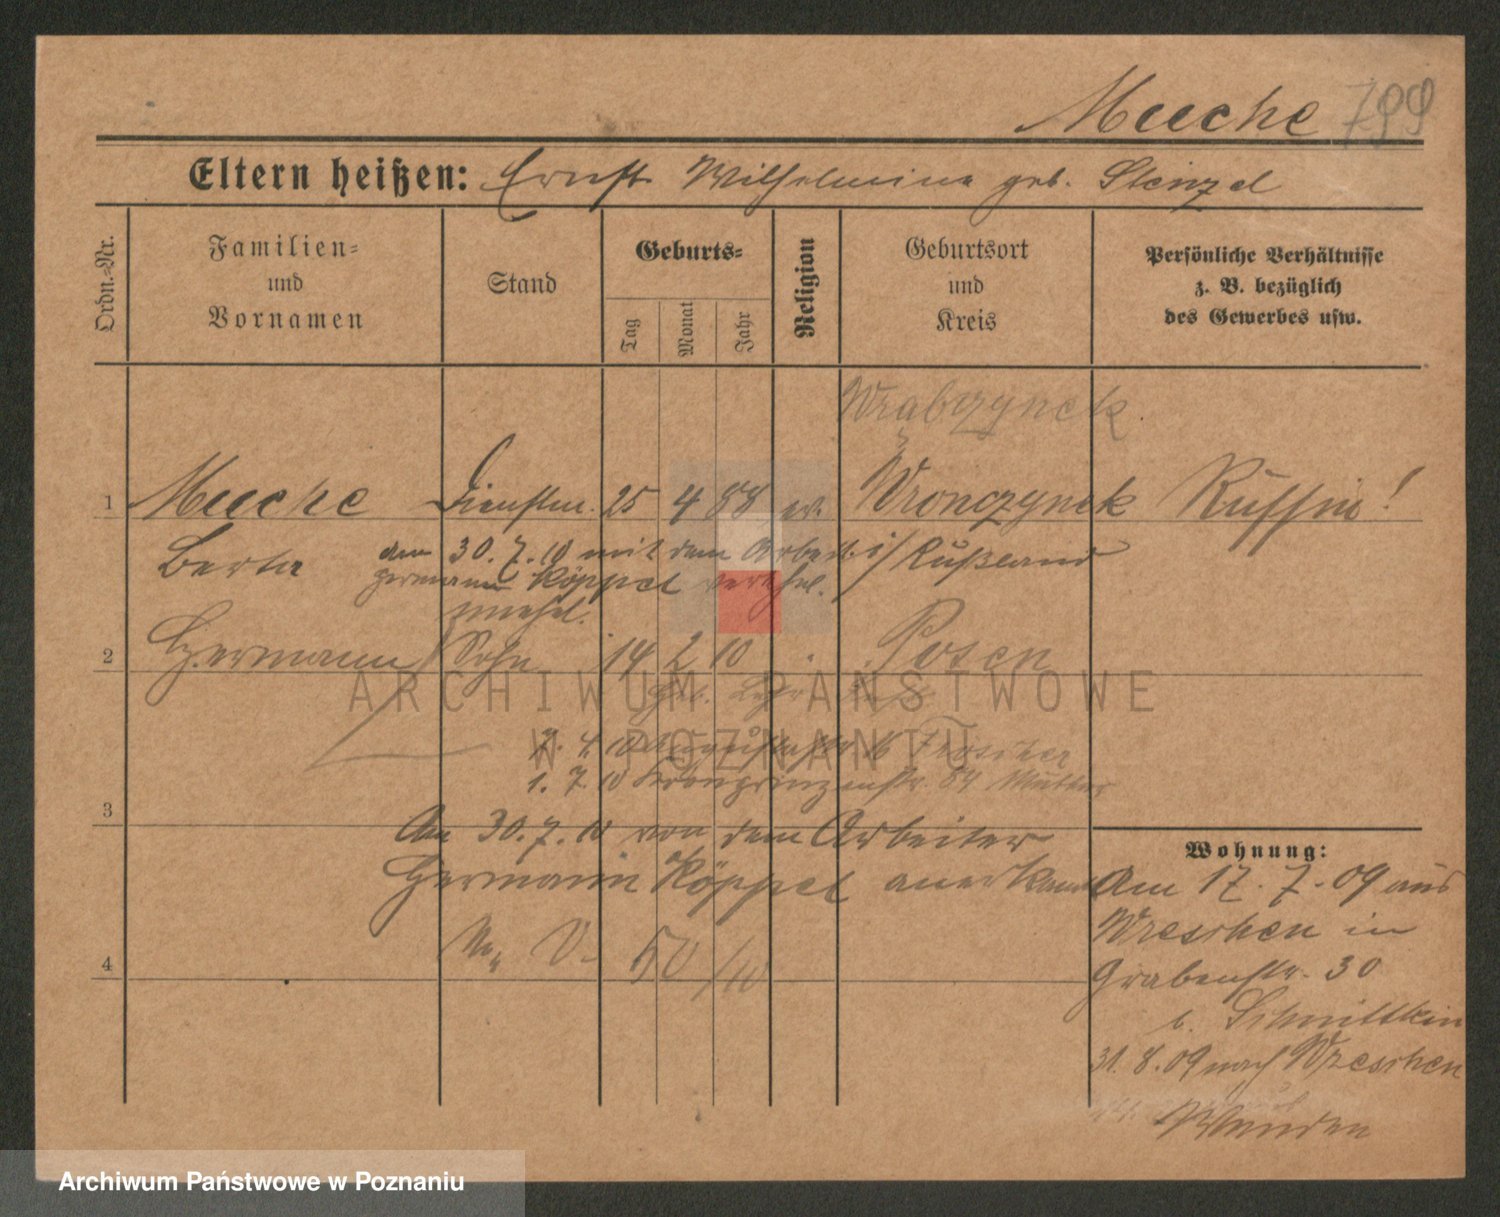 Meeche 799
Eltern heißen: Ernst Wilhelmine geb. Stenzel
Ordn.-Nr.
Familien-
und
Vornamen
Stand
Geburts-
Tag
Monat
Jahr
Religion
Geburtsort
und
Kreis
Persönliche Verhältnisse
z. B. bezüglich
des Gewerbes usw.
Wrąbczynek
1 Meeche Dienstm. 25 4 88 ev. Wronczynek Russin!
Berta den 30.7.10 mit dem Arbeit. i/ Rußland
Hermann Köppel verehel.
unehel.
2 Hermann Sohn 14 2 10 Posen
ARCHIWUM PAŃSTWOWE
W POZNANIU
7. 4. 10
1. 7. 10 Kronprinzenstr. 84 Mutter
3
Am 30.7.10 von dem Arbeiter
Hermann Köppel anerkannt
50/10
4
Wohnung:
Am 17.7.09 aus
Wreschen in
Grabenstr. 30
b. Schnittkin
31.8.09 nach Wreschen
Archiwum Państwowe w Poznaniu